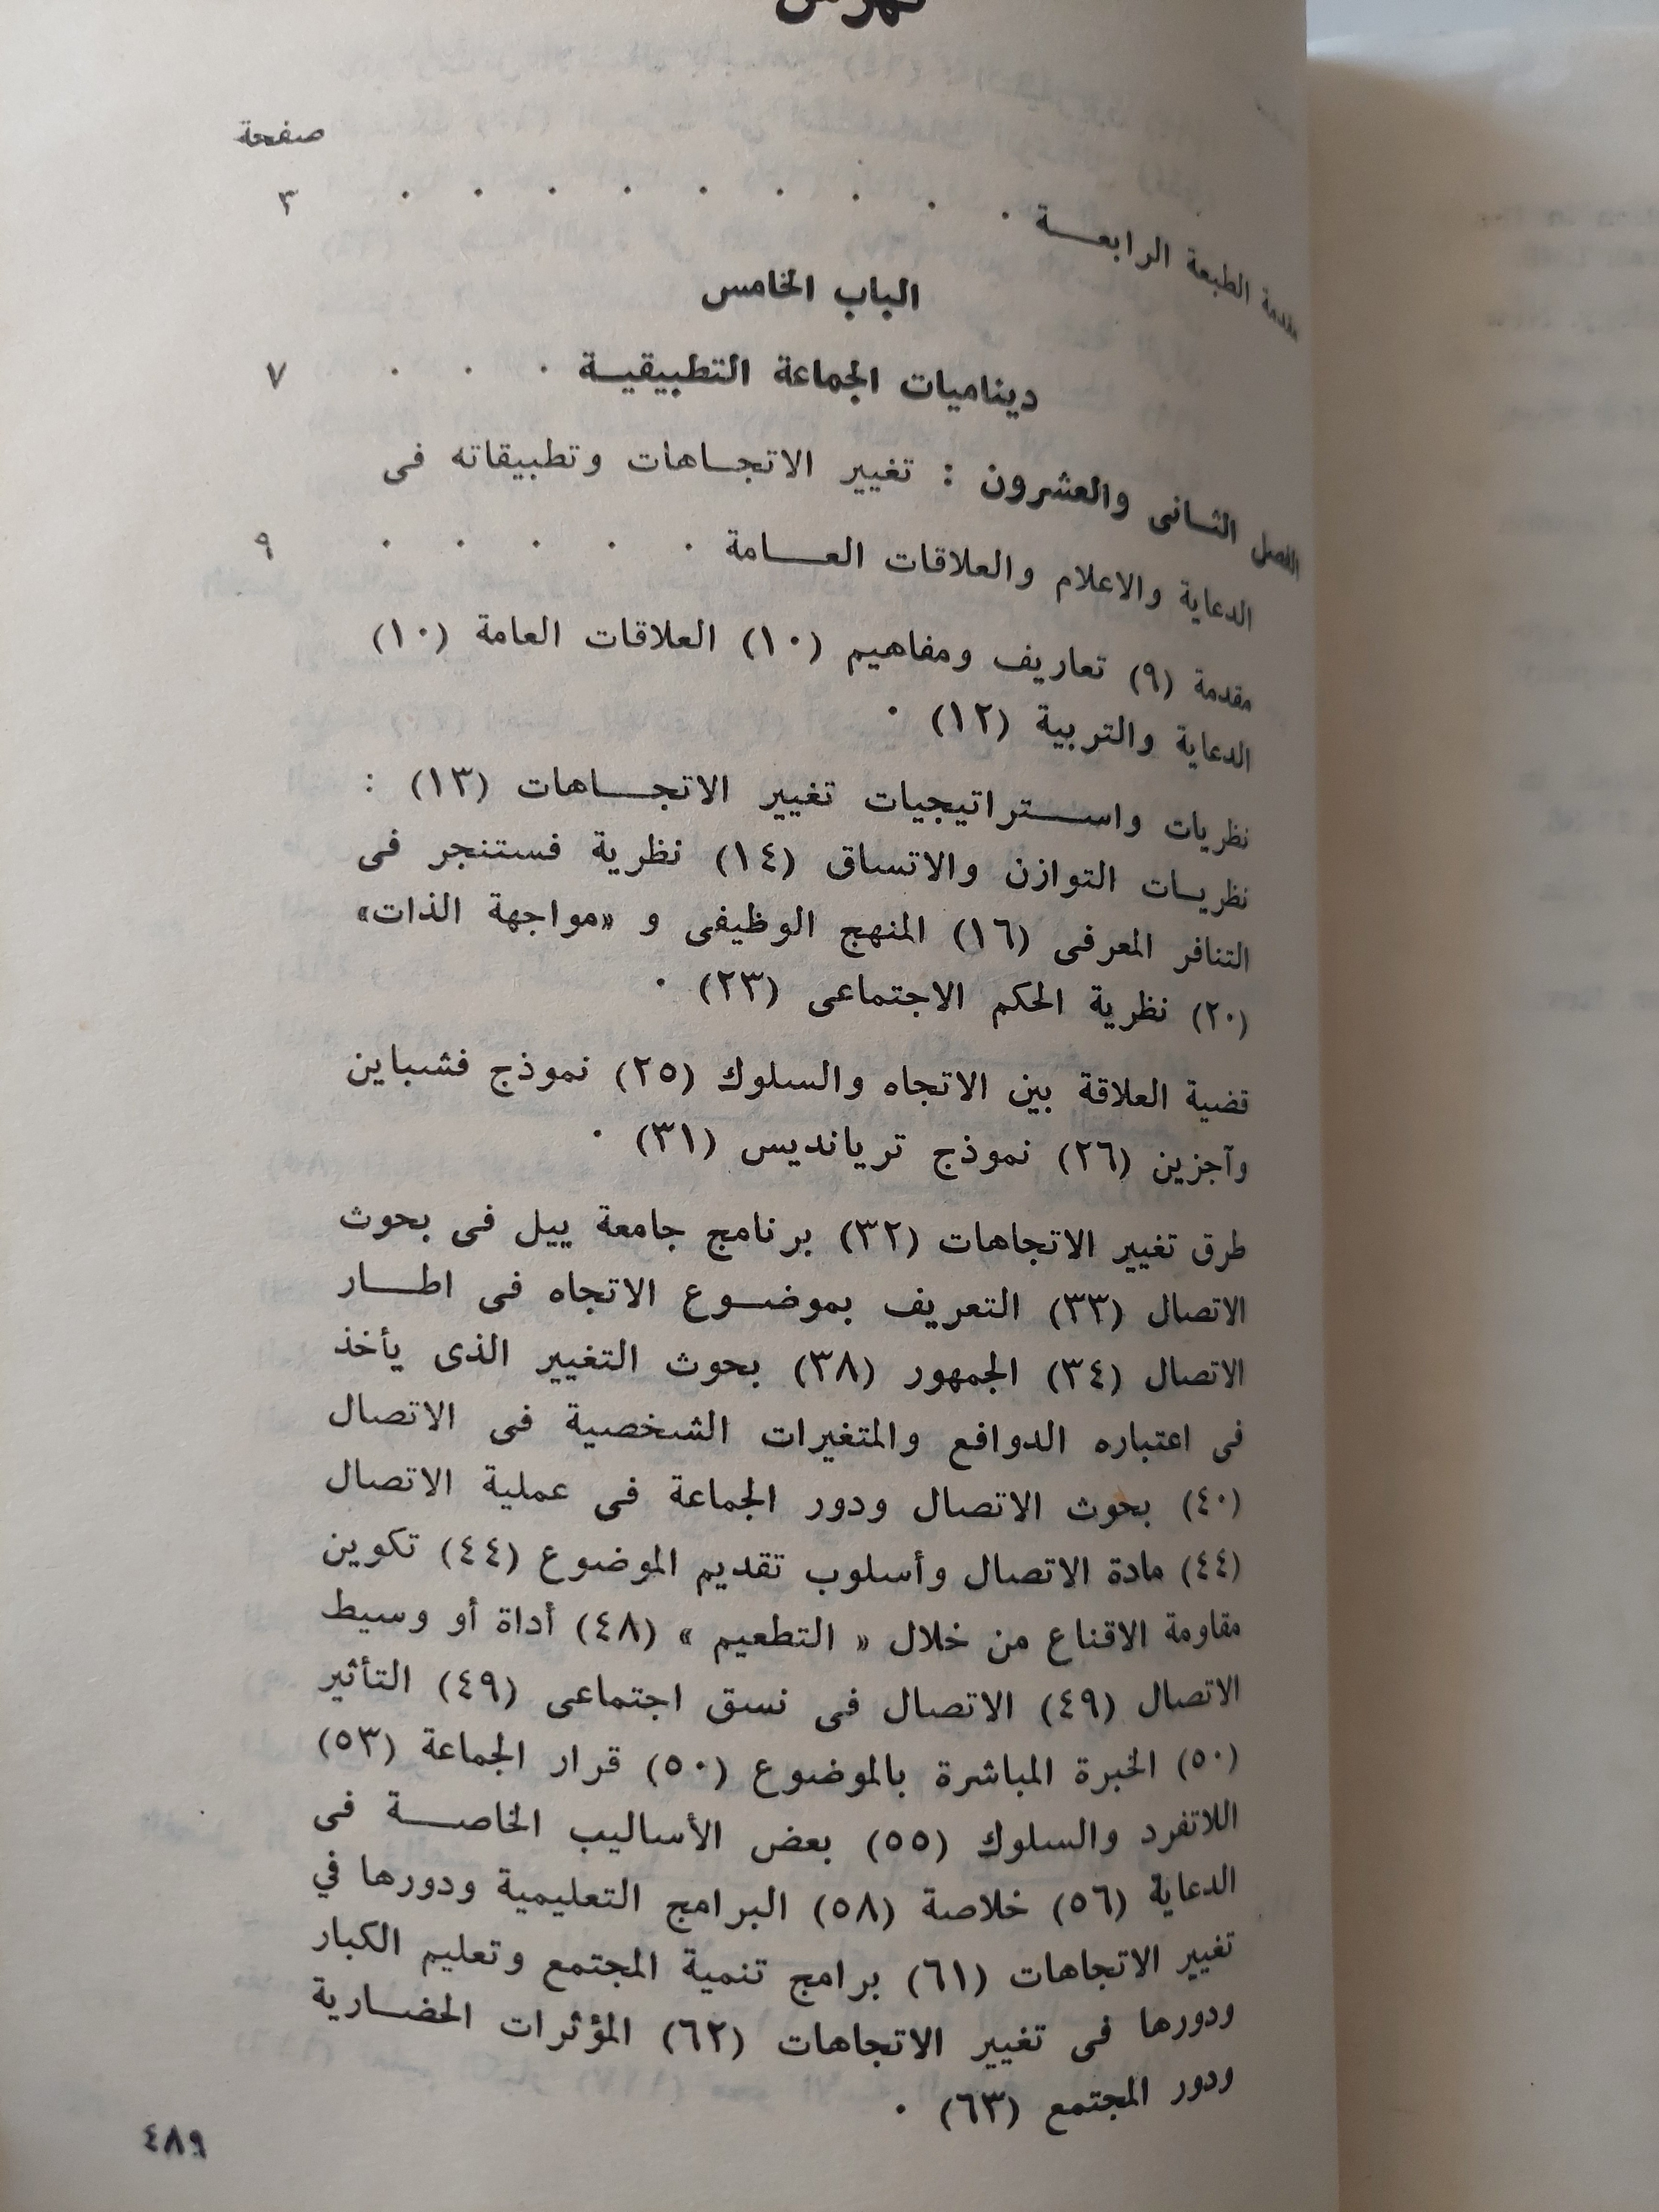 فهرس
صفحة
مقدمة الطبعة الرابعة . . . . . . . . . ٣
الباب الخامس
ديناميات الجماعة التطبيقية . . . ٧
الفصل الثانى والعشرون : تغيير الاتجاهات وتطبيقاته فى
الدعاية والاعلام والعلاقات العامة . . . . . ٩
مقدمة (٩) تعاريف ومفاهيم (١٠) العلاقات العامة (١٠)
الدعاية والتربية (١٢) .
نظريات واستراتيجيات تغيير الاتجاهات (١٣) :
نظريات التوازن والاتساق (١٤) نظرية فستنجر فى
التنافر المعرفى (١٦) المنهج الوظيفى و «مواجهة الذات»
(٢٠) نظرية الحكم الاجتماعى (٢٣) .
قضية العلاقة بين الاتجاه والسلوك (٢٥) نموذج فشباين
وآجزين (٢٦) نموذج تريانديس (٣١) .
طرق تغيير الاتجاهات (٣٢) برنامج جامعة ييل فى بحوث
الاتصال (٣٣) التعريف بموضوع الاتجاه فى اطار
الاتصال (٣٤) الجمهور (٣٨) بحوث التغيير الذى يأخذ
فى اعتباره الدوافع والمتغيرات الشخصية فى الاتصال
(٤٠) بحوث الاتصال ودور الجماعة فى عملية الاتصال
(٤٤) مادة الاتصال وأسلوب تقديم الموضوع (٤٤) تكوين
مقاومة الاقناع من خلال « التطعيم » (٤٨) أداة أو وسيط
الاتصال (٤٩) الاتصال فى نسق اجتماعى (٤٩) التأثير
(٥٠) الخبرة المباشرة بالموضوع (٥٠) قرار الجماعة (٥٣)
اللاتفرد والسلوك (٥٥) بعض الأساليب الخاصة فى
الدعاية (٥٦) خلاصة (٥٨) البرامج التعليمية ودورها في
تغيير الاتجاهات (٦١) برامج تنمية المجتمع وتعليم الكبار
ودورها فى تغيير الاتجاهات (٦٢) المؤثرات الحضارية
ودور المجتمع (٦٣) .
٤٨٩